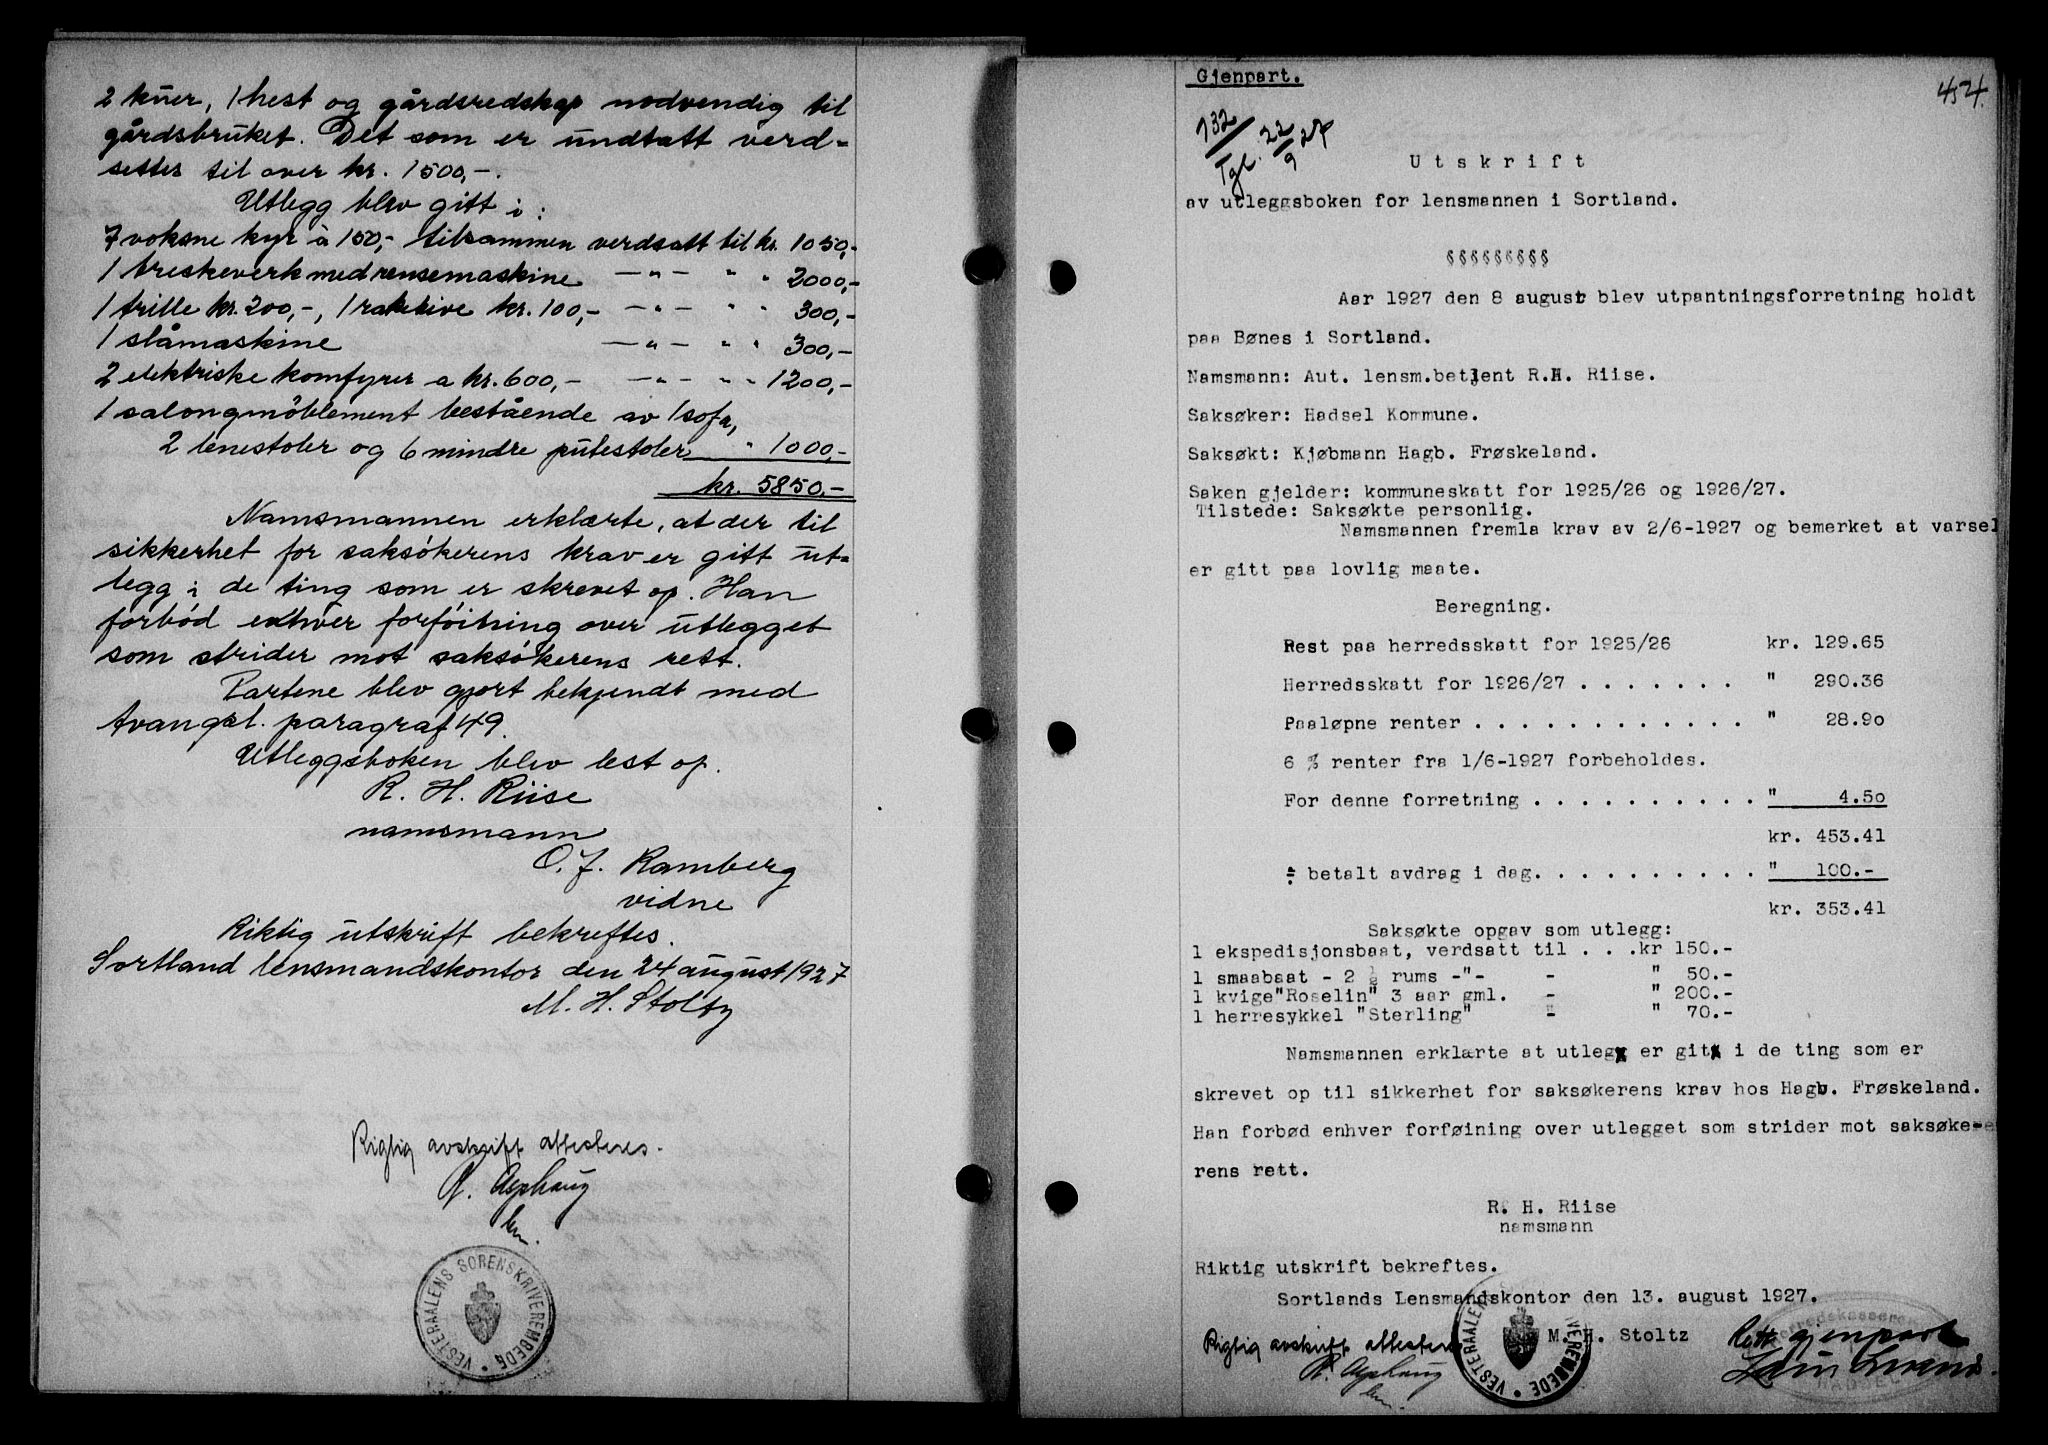 2 kuer, 1 hest og gårdsredskap nødvendig til
gårdsbruket. Det som er undtatt verd-
settes til over kr. 1500,-.
Utlegg blev gitt i:
7 voksne kyr à 150,- tilsammen verdsatt til kr. 1050,-
1 treskeverk med rensemaskine -"- " " 2000,-
1 trille kr. 200,-, 1 rakerive kr. 100,- -"- " " 300,-
1 slåmaskine -"- " " 300,-
2 elektriske komfyrer a kr. 600,- -"- " " 1200,-
1 salongmöblement bestående av 1 sofa,
2 lenestoler og 6 mindre putestoler " 1000,-
kr. 5850,-
Namsmannen erklærte, at der til
sikkerhet for saksökerens krav er gitt ut-
legg i de ting som er skrevet op. Han
forbød enhver forföining over utlegget
som strider mot saksökerens rett.
Partene blev gjort bekjendt med
tvangsl. paragraf 49.
Utleggsboken blev lest op.
R. H. Riise
namsmann
O. J. Ramberg
vidne
Riktig utskrift bekreftes.
Sortland lensmandskontor den 24 august 1927
M. H. Stoltz
Rigtig avskrift attesteres.
VESTERAALENS SORENSKRIVEREMBEDE
Gjenpart.
454.
732/
Tgl. 22/9 27
Utskrift
av utleggsboken for lensmannen i Sortland.
§§§§§§§§§
Aar 1927 den 8 august blev utpantningsforretning holdt
paa Bønes i Sortland.
Namsmann: Aut. lensm.betjent R.H. Riise.
Saksøker: Hadsel Kommune.
Saksøkt: Kjøbmann Hagb. Frøskeland.
Saken gjelder: kommuneskatt for 1925/26 og 1926/27.
Tilstede: Saksøkte personlig.
Namsmannen fremla krav av 2/6-1927 og bemerket at varsel
er gitt paa lovlig maate.
Beregning.
Rest paa herredsskatt for 1925/26 kr. 129.65
Herredsskatt for 1926/27 . . . . . . . " 290.36
Paaløpne renter . . . . . . . . . . . . . " 28.90
6 % renter fra 1/6-1927 forbeholdes.
For denne forretning . . . . . . . . . . . " 4.50
kr. 453.41
÷ betalt avdrag i dag. . . . . . . . . . . " 100.-
kr. 353.41
Saksøkte opgav som utlegg:
1 ekspedisjonsbaat, verdsatt til . . .kr 150.-
1 smaabaat - 2 ½ rums -"- - " 50.-
1 kvige"Roselin" 3 aar gml. - " 200.-
1 herresykkel "Sterling" - " 70.-
Namsmannen erklærte at utlegg er gitt i de ting som er
skrevet op til sikkerhet for saksøkerens krav hos Hagb. Frøskeland.
Han forbød enhver forføining over utlegget som strider mot saksøke-
rens rett.
R. H. Riise
namsmann
Riktig utskrift bekreftes.
Sortlands Lensmandskontor den 13. august 1927.
M. H. Stoltz
Rigtig avskrift attesteres
Rett gjenpart
VESTERAALENS SORENSKRIVEREMBEDE
Herredskasseren
HADSEL